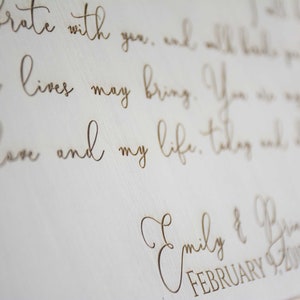 brate with you, and walk beside you
lives may bring. You are my
love and my life, today and
Emily &
February 9, 20